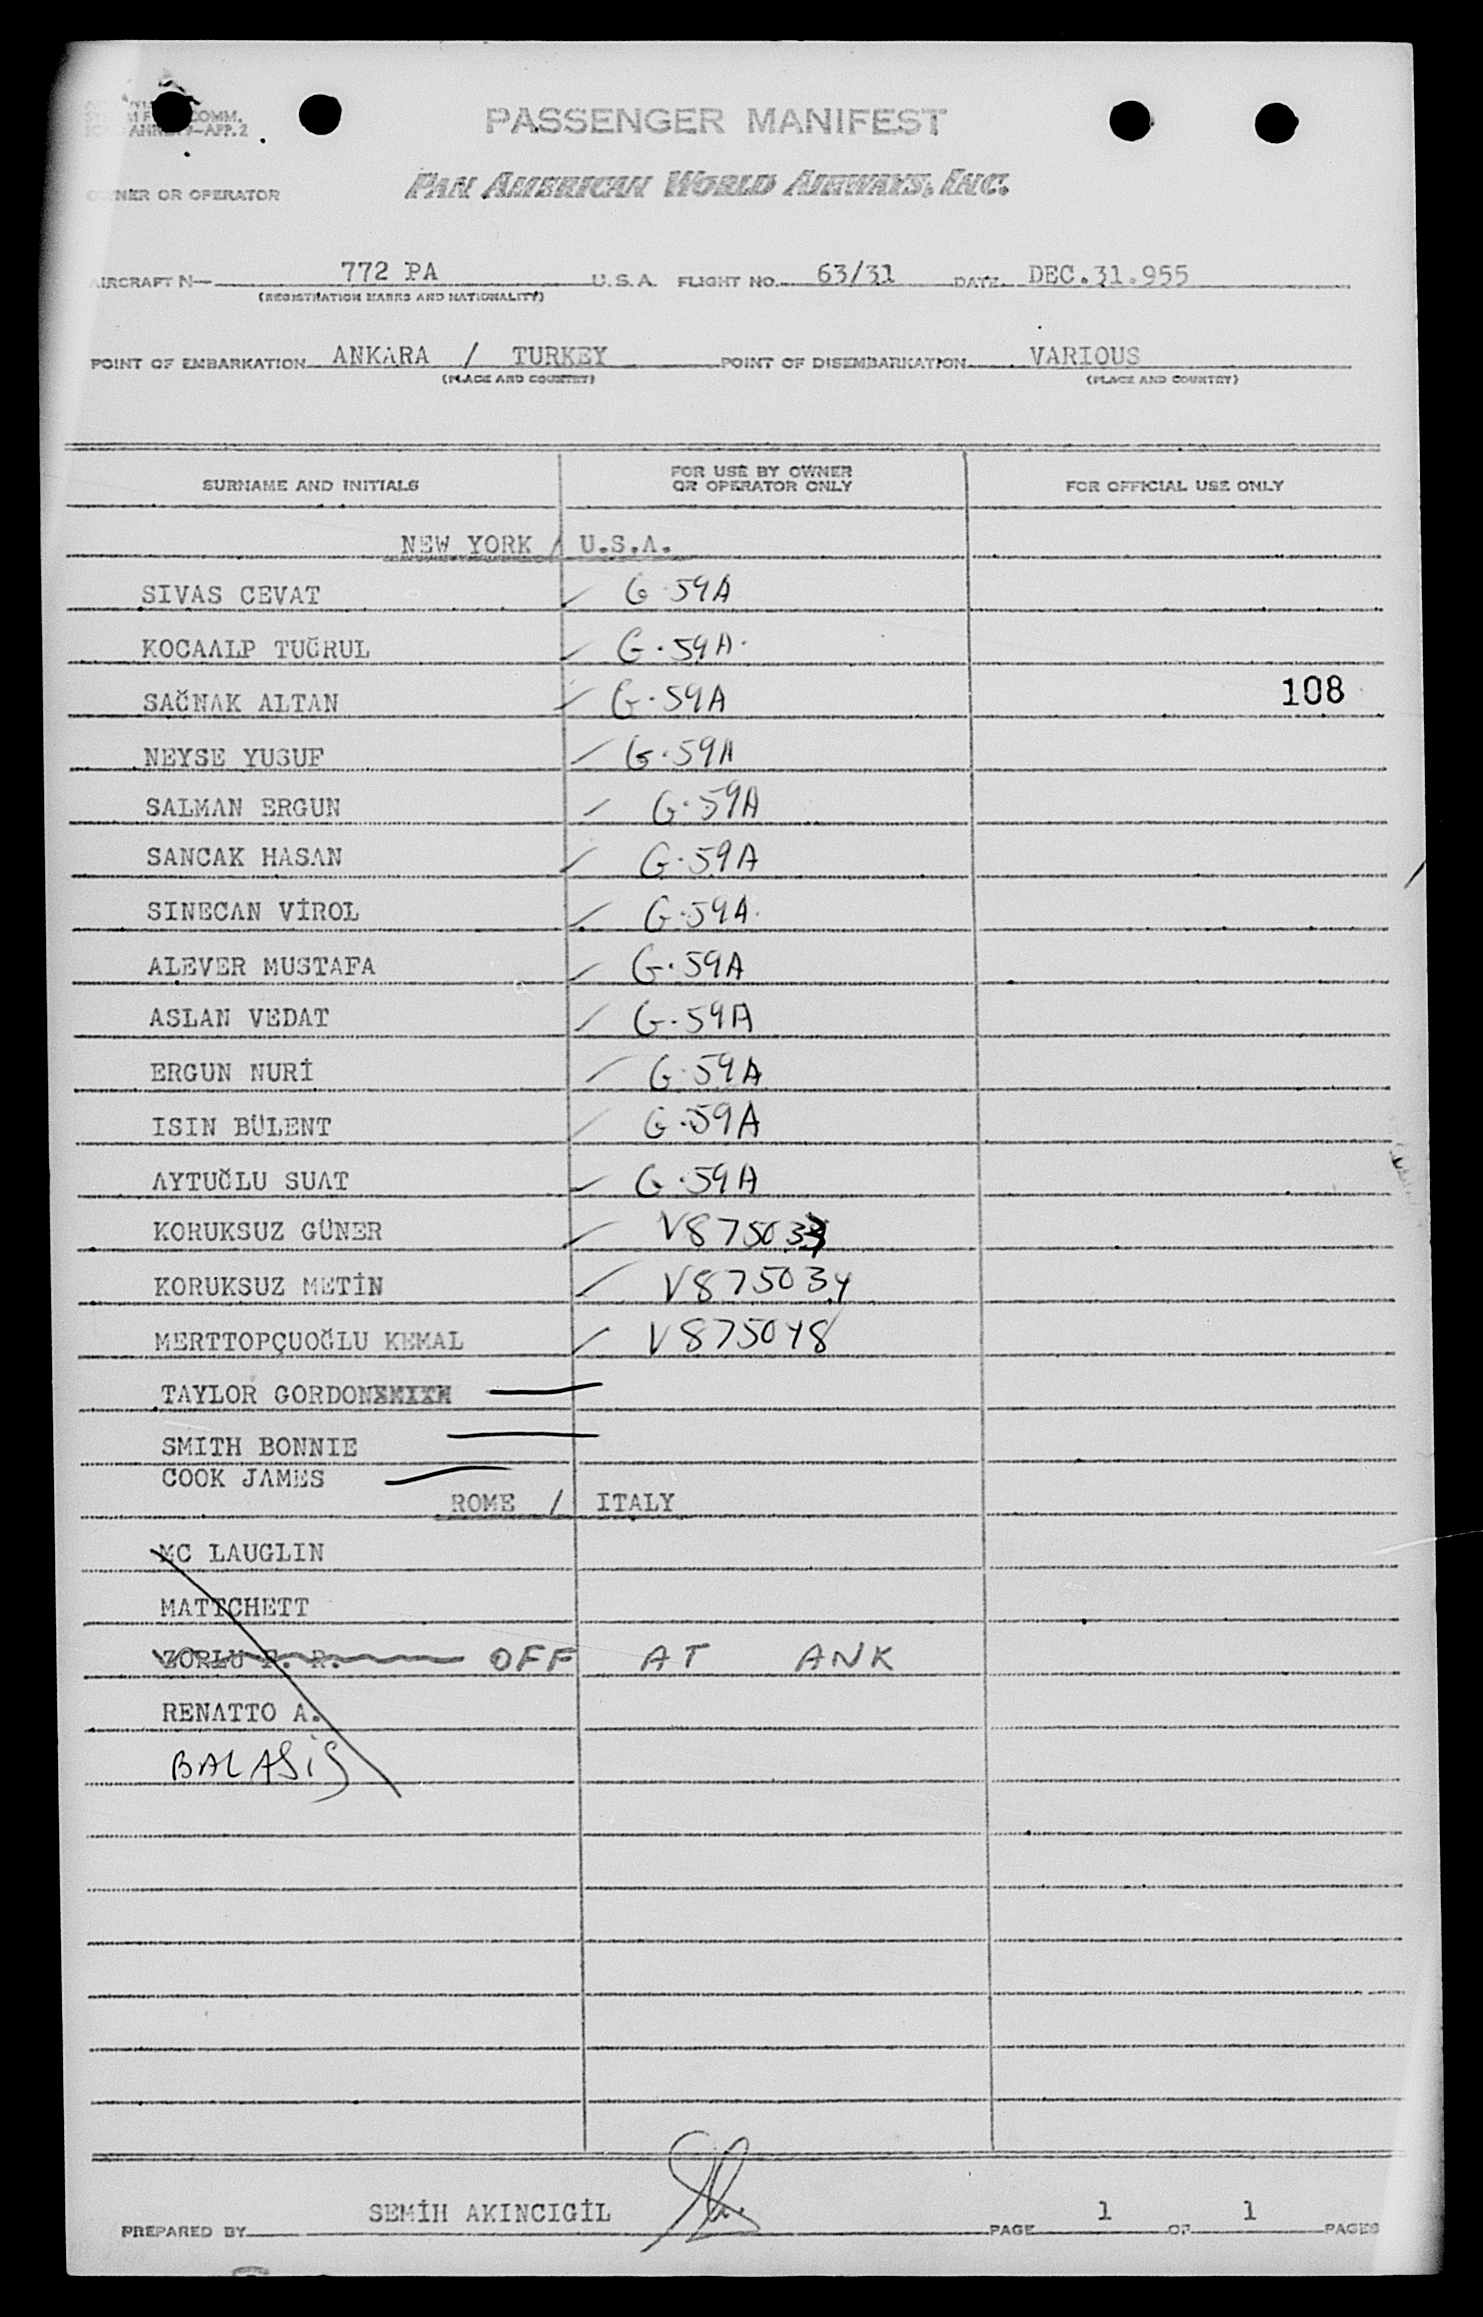 COMM.
APP. 2
PASSENGER MANIFEST
OWNER OR OPERATOR PAN AMERICAN WORLD AIRWAYS, INC.
AIRCRAFT N— 772 PA U.S.A. FLIGHT NO. 63/31 DATE DEC.31.955
(REGISTRATION MARKS AND NATIONALITY)
POINT OF EMBARKATION ANKARA / TURKEY POINT OF DISEMBARKATION VARIOUS
(PLACE AND COUNTRY) (PLACE AND COUNTRY)
SURNAME AND INITIALS FOR USE BY OWNER OR OPERATOR ONLY FOR OFFICIAL USE ONLY
NEW YORK / U.S.A.
SIVAS CEVAT ✓ G 59A
KOCAALP TUĞRUL ✓ G·59A·
SAĞNAK ALTAN ✓ G·59A 108
NEYSE YUSUF ✓ G·59A
SALMAN ERGUN ✓ G·59A
SANCAK HASAN ✓ G·59A
SINECAN VİROL ✓ G·59A·
ALEVER MUSTAFA ✓ G·59A
ASLAN VEDAT ✓ G·59A
ERGUN NURİ ✓ G·59A
ISIN BÜLENT ✓ G·59A
AYTUĞLU SUAT ✓ G·59A
KORUKSUZ GÜNER ✓ V875033
KORUKSUZ METİN ✓ V875034
MERTTOPÇUOĞLU KEMAL ✓ V875048
TAYLOR GORDON
SMITH BONNIE
COOK JAMES
ROME / ITALY
MC LAUGLIN
MATTCHETT
ZORLU F. R. OFF AT ANK
RENATTO A.
BALASIS
PREPARED BY SEMİH AKINCIGİL PAGE 1 OF 1 PAGES